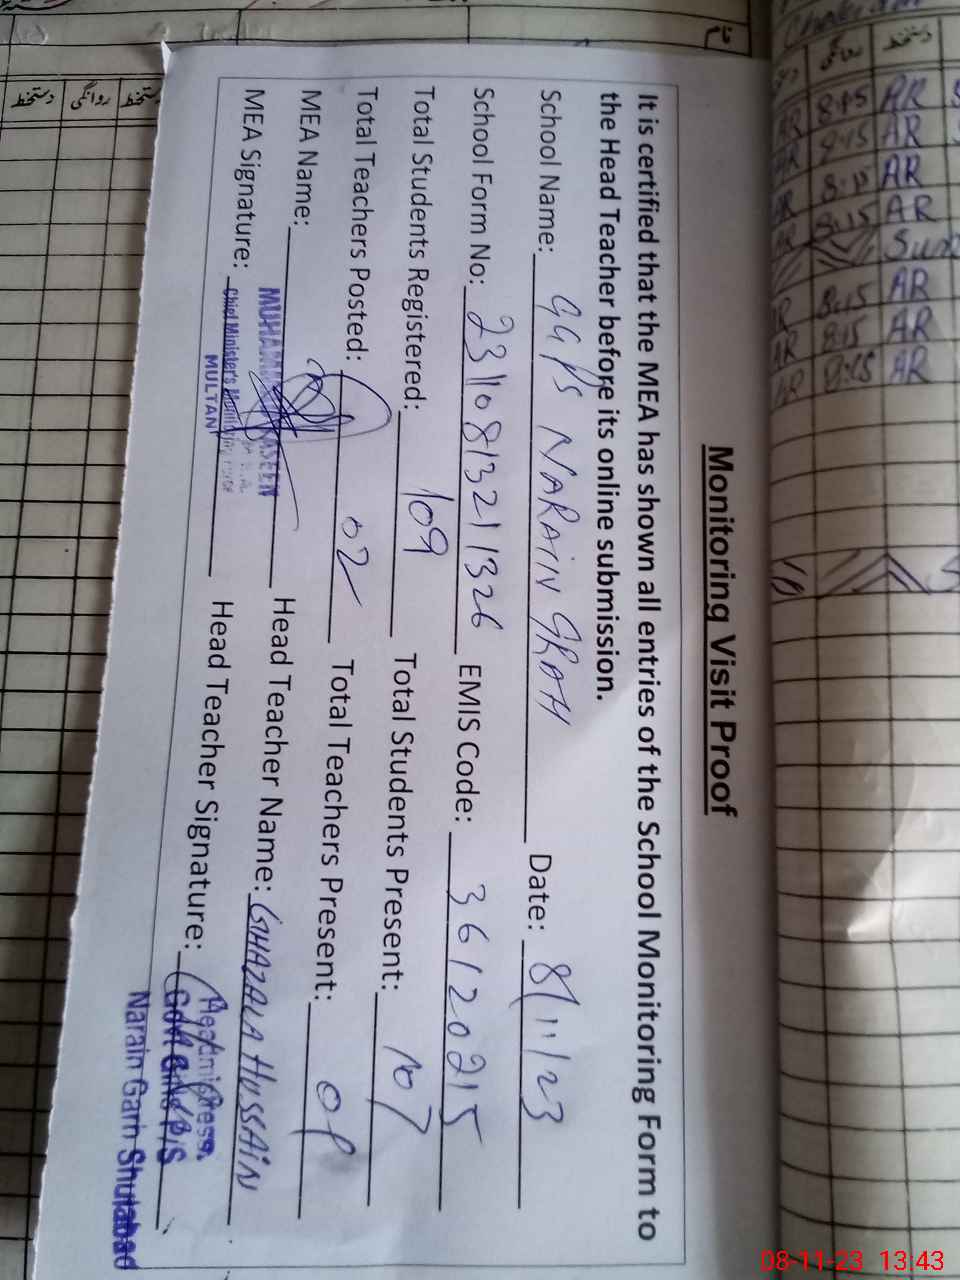 Monitoring Visit Proof
It is certified that the MEA has shown all entries of the School Monitoring Form to
the Head Teacher before its online submission.
School Name: GGPS NARAIN GRAH Date: 8/11/23
School Form No: 23110813211326 EMIS Code: 36120215
Total Students Registered: 109 Total Students Present: 107
Total Teachers Posted: 02 Total Teachers Present:
MEA Name: Head Teacher Name: GHAZALA HUSSAIN
MEA Signature: Head Teacher Signature:
Chief Minister's Monitoring Force
MULTAN
Headmistress
Narain Garh Shujabad
دستخط روانگی دستخط
روانگی دستخط
8:45 AR
8:15 AR
AR
8:15 AR
8:15 AR
8:15 AR
AR
08-11-23 13:43